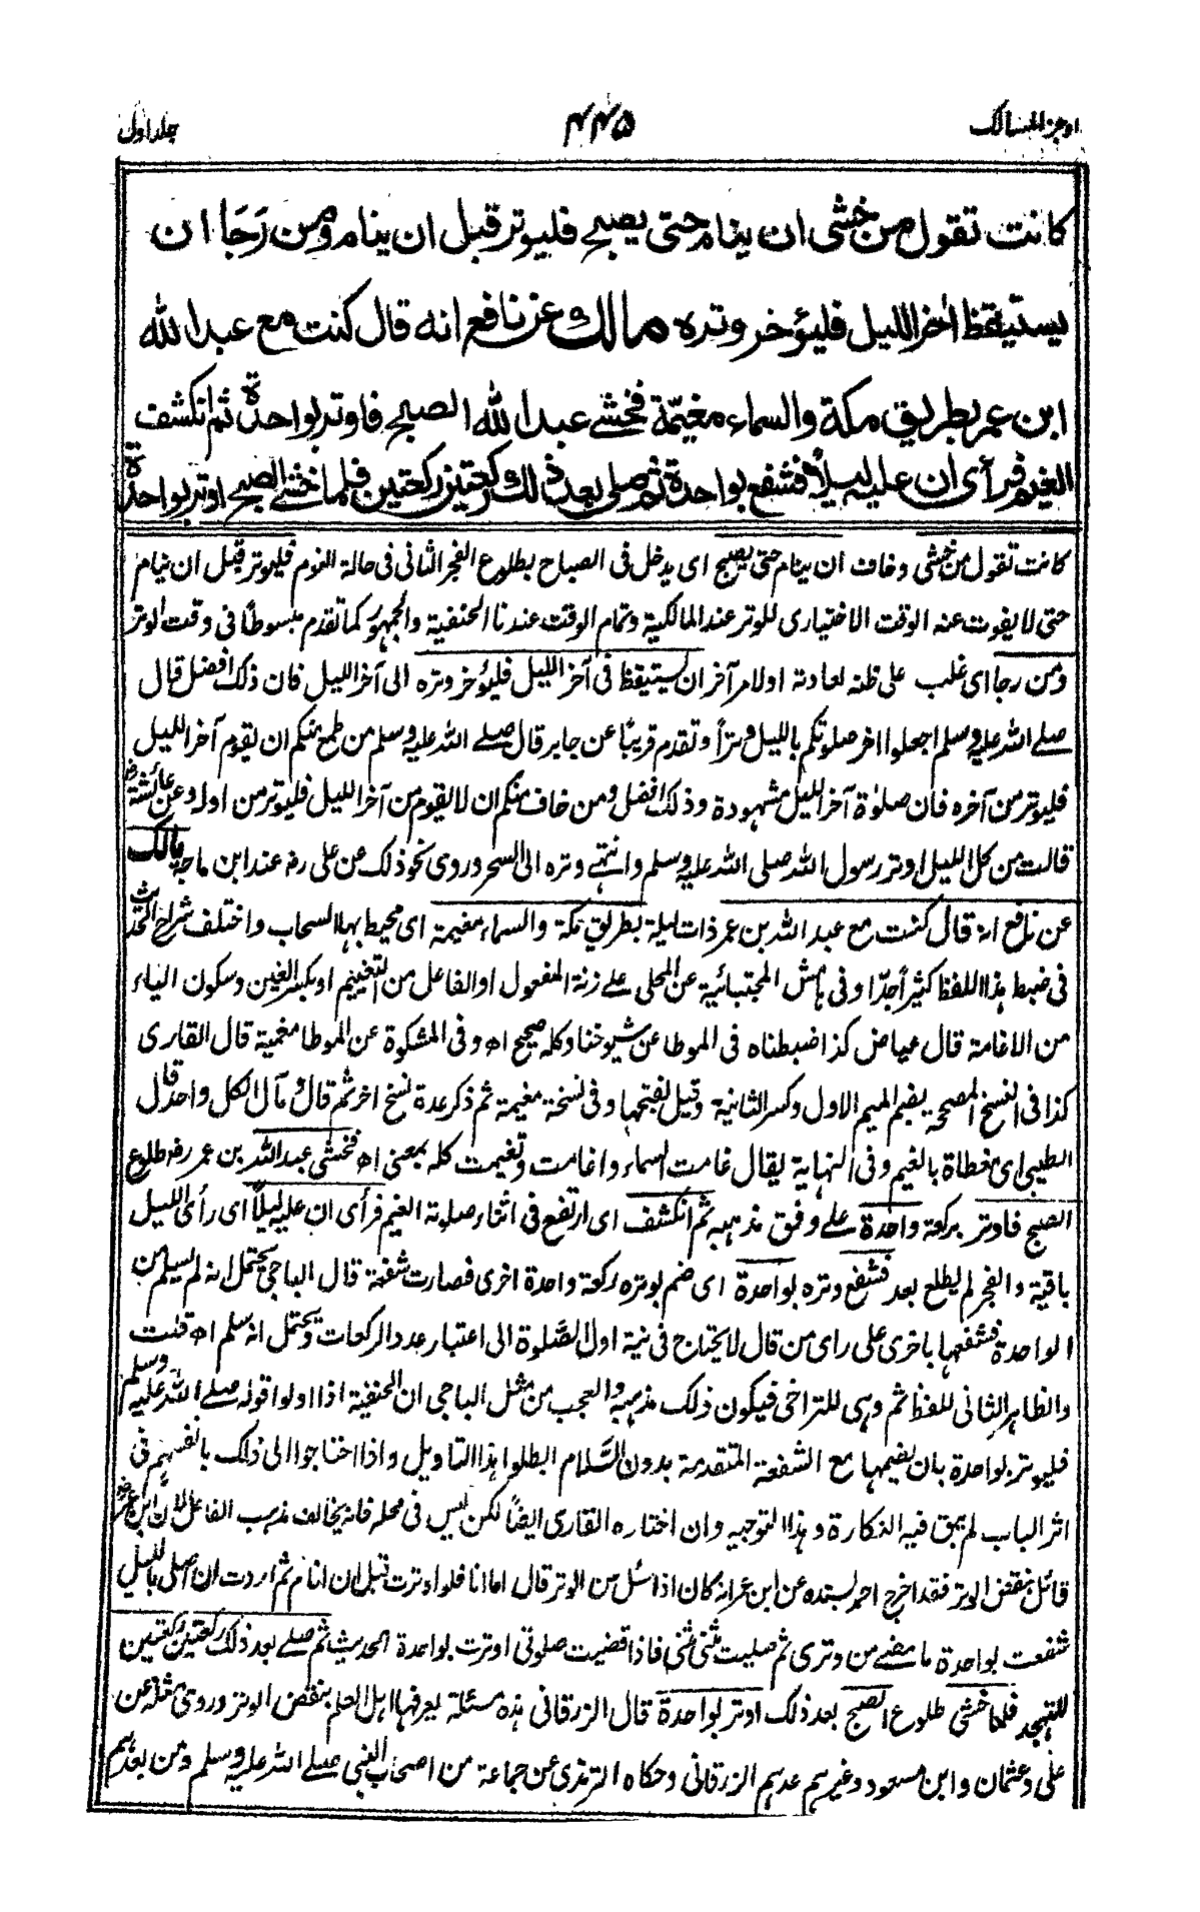 اوجز المسالك
۴۴۵
جلد اول
كانت تقول من خشى ان ينام حتى يصبح فليوتر قبل ان ينام ومن رَجَا ان
يستيقظ اٰخر الليل فليؤخر وتره مالك عن نافع انه قال كنت مع عبد الله
ابن عمر بطريق مكة والسماء مغيّمة فخشى عبد الله الصبح فاوتر بواحدة ثم انكشف
الغيم فرأى ان عليه ليلاً فشفع بواحدة ثم صلى بعد ذلك ركعتين ركعتين فلما خشى الصبح اوتر بواحدة
كانت تقول من خشى وخاف ان ينام حتى يصبح اى يدخل فى الصباح بطلوع الفجر الثانى فى حالة النوم فليوتر قبل ان ينام
حتى لا يفوت عنه الوقت الاختيارى للوتر عند المالكية وتمام الوقت عندنا الحنفية والجمهور كما تقدم مبسوطاً فى وقت الوتر
ومن رجا اى غلب على ظنه لعادته او لامر آخر ان يستيقظ فى آخر الليل فليؤخر وتره الى آخر الليل فان ذلك افضل قال
صلے الله عليه وسلم اجعلوا اخر صلوتكم بالليل وتراً وتقدم قريبًا عن جابر قال صلے الله عليه وسلم من طمع منكم ان يقوم آخر الليل
فليوتر من آخره فان صلوٰة آخر الليل مشهودة وذلك افضل ومن خاف منكم ان لا يقوم من آخر الليل فليوتر من اوله وعن عائشة رض
قالت من كل الليل اوتر رسول الله صلى الله عليه وسلم وانتهى وتره الى السحر وروى نحو ذلك عن على رض عند ابن ماجه مالك
عن نافع انه قال كنت مع عبد الله بن عمر ذات ليلة بطريق مكة والسماء مغيمة اى محيط بها السحاب واختلف شراح الحديث
فى ضبط هذا اللفظ كثيراً جدًّا وفى هامش المجتبائية عن المحلى على زنة المفعول او الفاعل من التغييم او بكسر الغين وسكون الياء
من الاغامة قال عياض كذا ضبطناه فى الموطا عن شيوخنا وكله صحيح اھ وفى المشكوة عن الموطا مغمية قال القارى
كذا فى النسخ المصححة بضم الميم الاول وكسر الثانية وقيل بفتحها وفى نسخة مغيمة ثم ذكر عدة نسخ اخر ثم قال مآل الكل واحد قال
الطيبى اى مغطاة بالغيم وفى النهاية يقال غامت السماء واغامت وتغيمت كله بمعنى اھ فخشى عبد الله بن عمر رض طلوع
الصبح فاوتر بركعة واحدة على وفق مذهبه ثم انكشف اى ارتفع فى اثناء صلوته الغيم فرأى ان عليه ليلاً اى رأى الليل
باقية والفجر لم يطلع بعد فشفع وتره بواحدة اى ضم بوتره ركعة واحدة اخرى فصارت شفعة قال الباجى يحتمل انه لم يسلم من
الواحدة فشفعها باخرى على راى من قال لا يحتاج فى نية اول الصَّلوة الى اعتبار عدد الركعات ويحتمل انه سلم اھ قلت
والظاهر الثانى للفظ ثم وهى للتراخى فيكون ذلك مذهبه والعجب من مثل الباجى ان الحنفية اذا اولوا قوله صلے الله عليه وسلم
فليوتر بواحدة بان يضمها مع الشفعة المتقدمة بدون السَّلام ابطلوا هذا التاويل واذا احتاجوا الى ذلك بانفسهم فى
اثر الباب لم يبق فيه النكارة وهذا التوجيه وان اختاره القارى ايضاً لكن ليس فى محله فانه يخالف مذهب الفاعل لانّ ابن عمر رض
قائل بنقض الوتر فقد اخرج احمد بسنده عن ابن عمر انه كان اذا سئل من الوتر قال اما انا فلو اوترت قبل ان انام ثم اردت ان اصلى بالليل
شفعت بواحدة ما مضى من وترى ثم صليت مثنى مثنى فاذا قضيت صلوتى اوترت بواحدة الحديث ثم صلے بعد ذلك ركعتين ركعتين
للتهجد فلما خشى طلوع الصبح بعد ذلك اوتر بواحدة قال الزرقانى هذه مسئلة يعرفها اهل العلم بنقض الوتر وروى مثله عن
على وعثمان وابن مسعود وغيرهم عدهم الزرقانى وحكاه الترمذى عن جماعة من اصحاب النبى صلے الله عليه وسلم ومن بعدهم